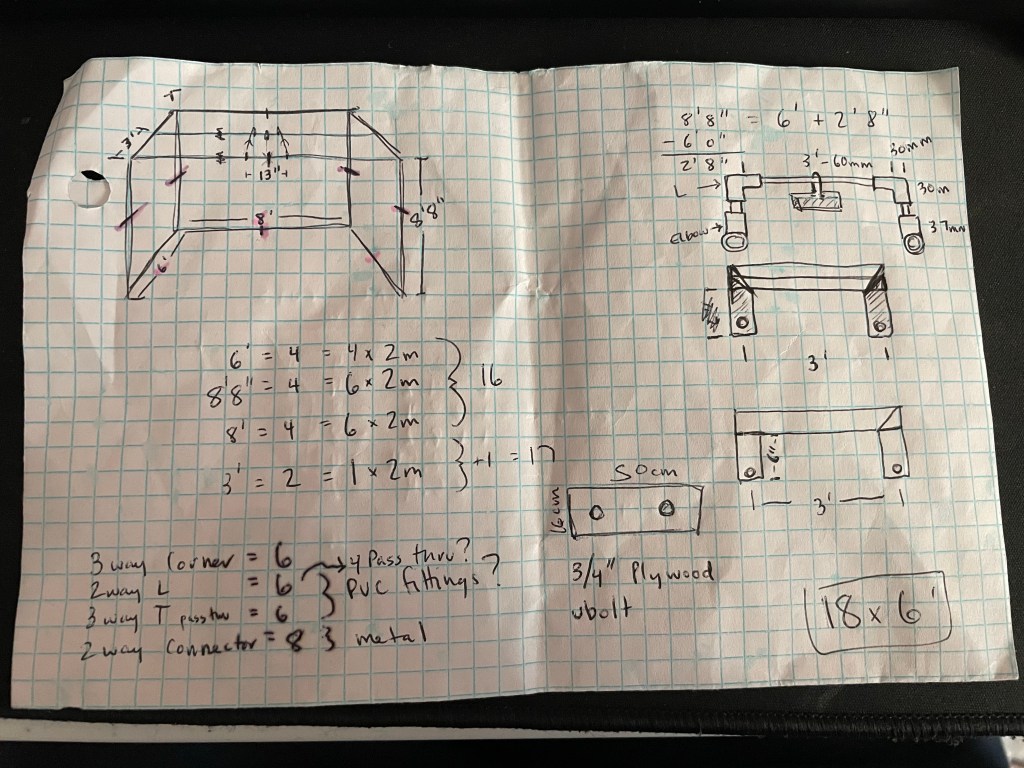 T
3'
13"
8'
8'8"
6'
6' = 4 = 4 x 2m
8'8" = 4 = 6 x 2m
16
8' = 4 = 6 x 2m
3' = 2 = 1 x 2m
+1 = 17
3 way Corner = 6
→ 4 Pass thru?
2 way L = 6
PVC fittings?
3 way T pass thru = 6
2 way Connector = 8 } metal
8'8" = 6' + 2'8"
- 6'0"
2'8"
30mm
3'-60mm
L →
30m
Elbow →
37mm
3'
6"
3'
50cm
16cm
3/4" Plywood
ubolt
18 x 6'